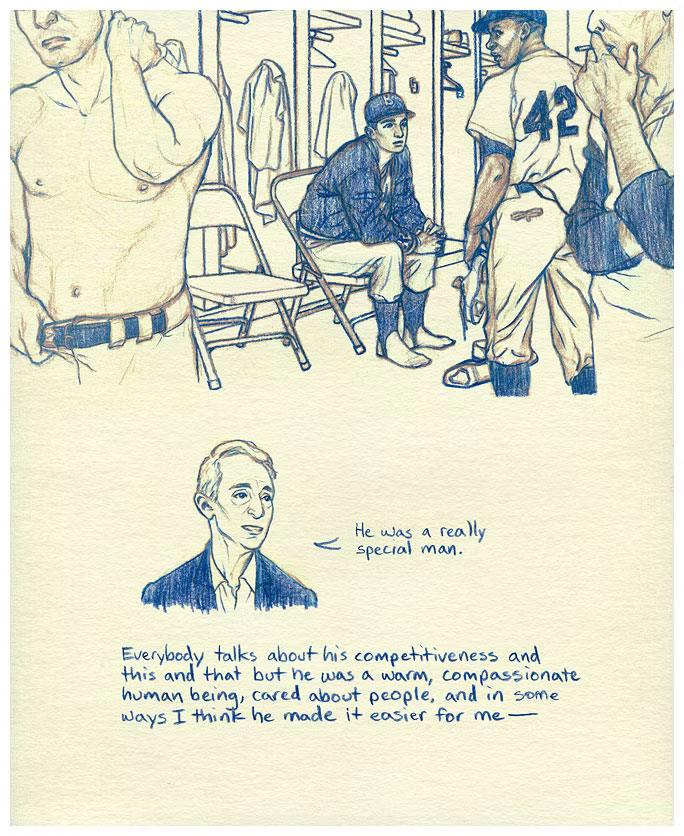 B
42
He was a really
special man.
Everybody talks about his competitiveness and
this and that but he was a warm, compassionate
human being, cared about people, and in some
ways I think he made it easier for me —